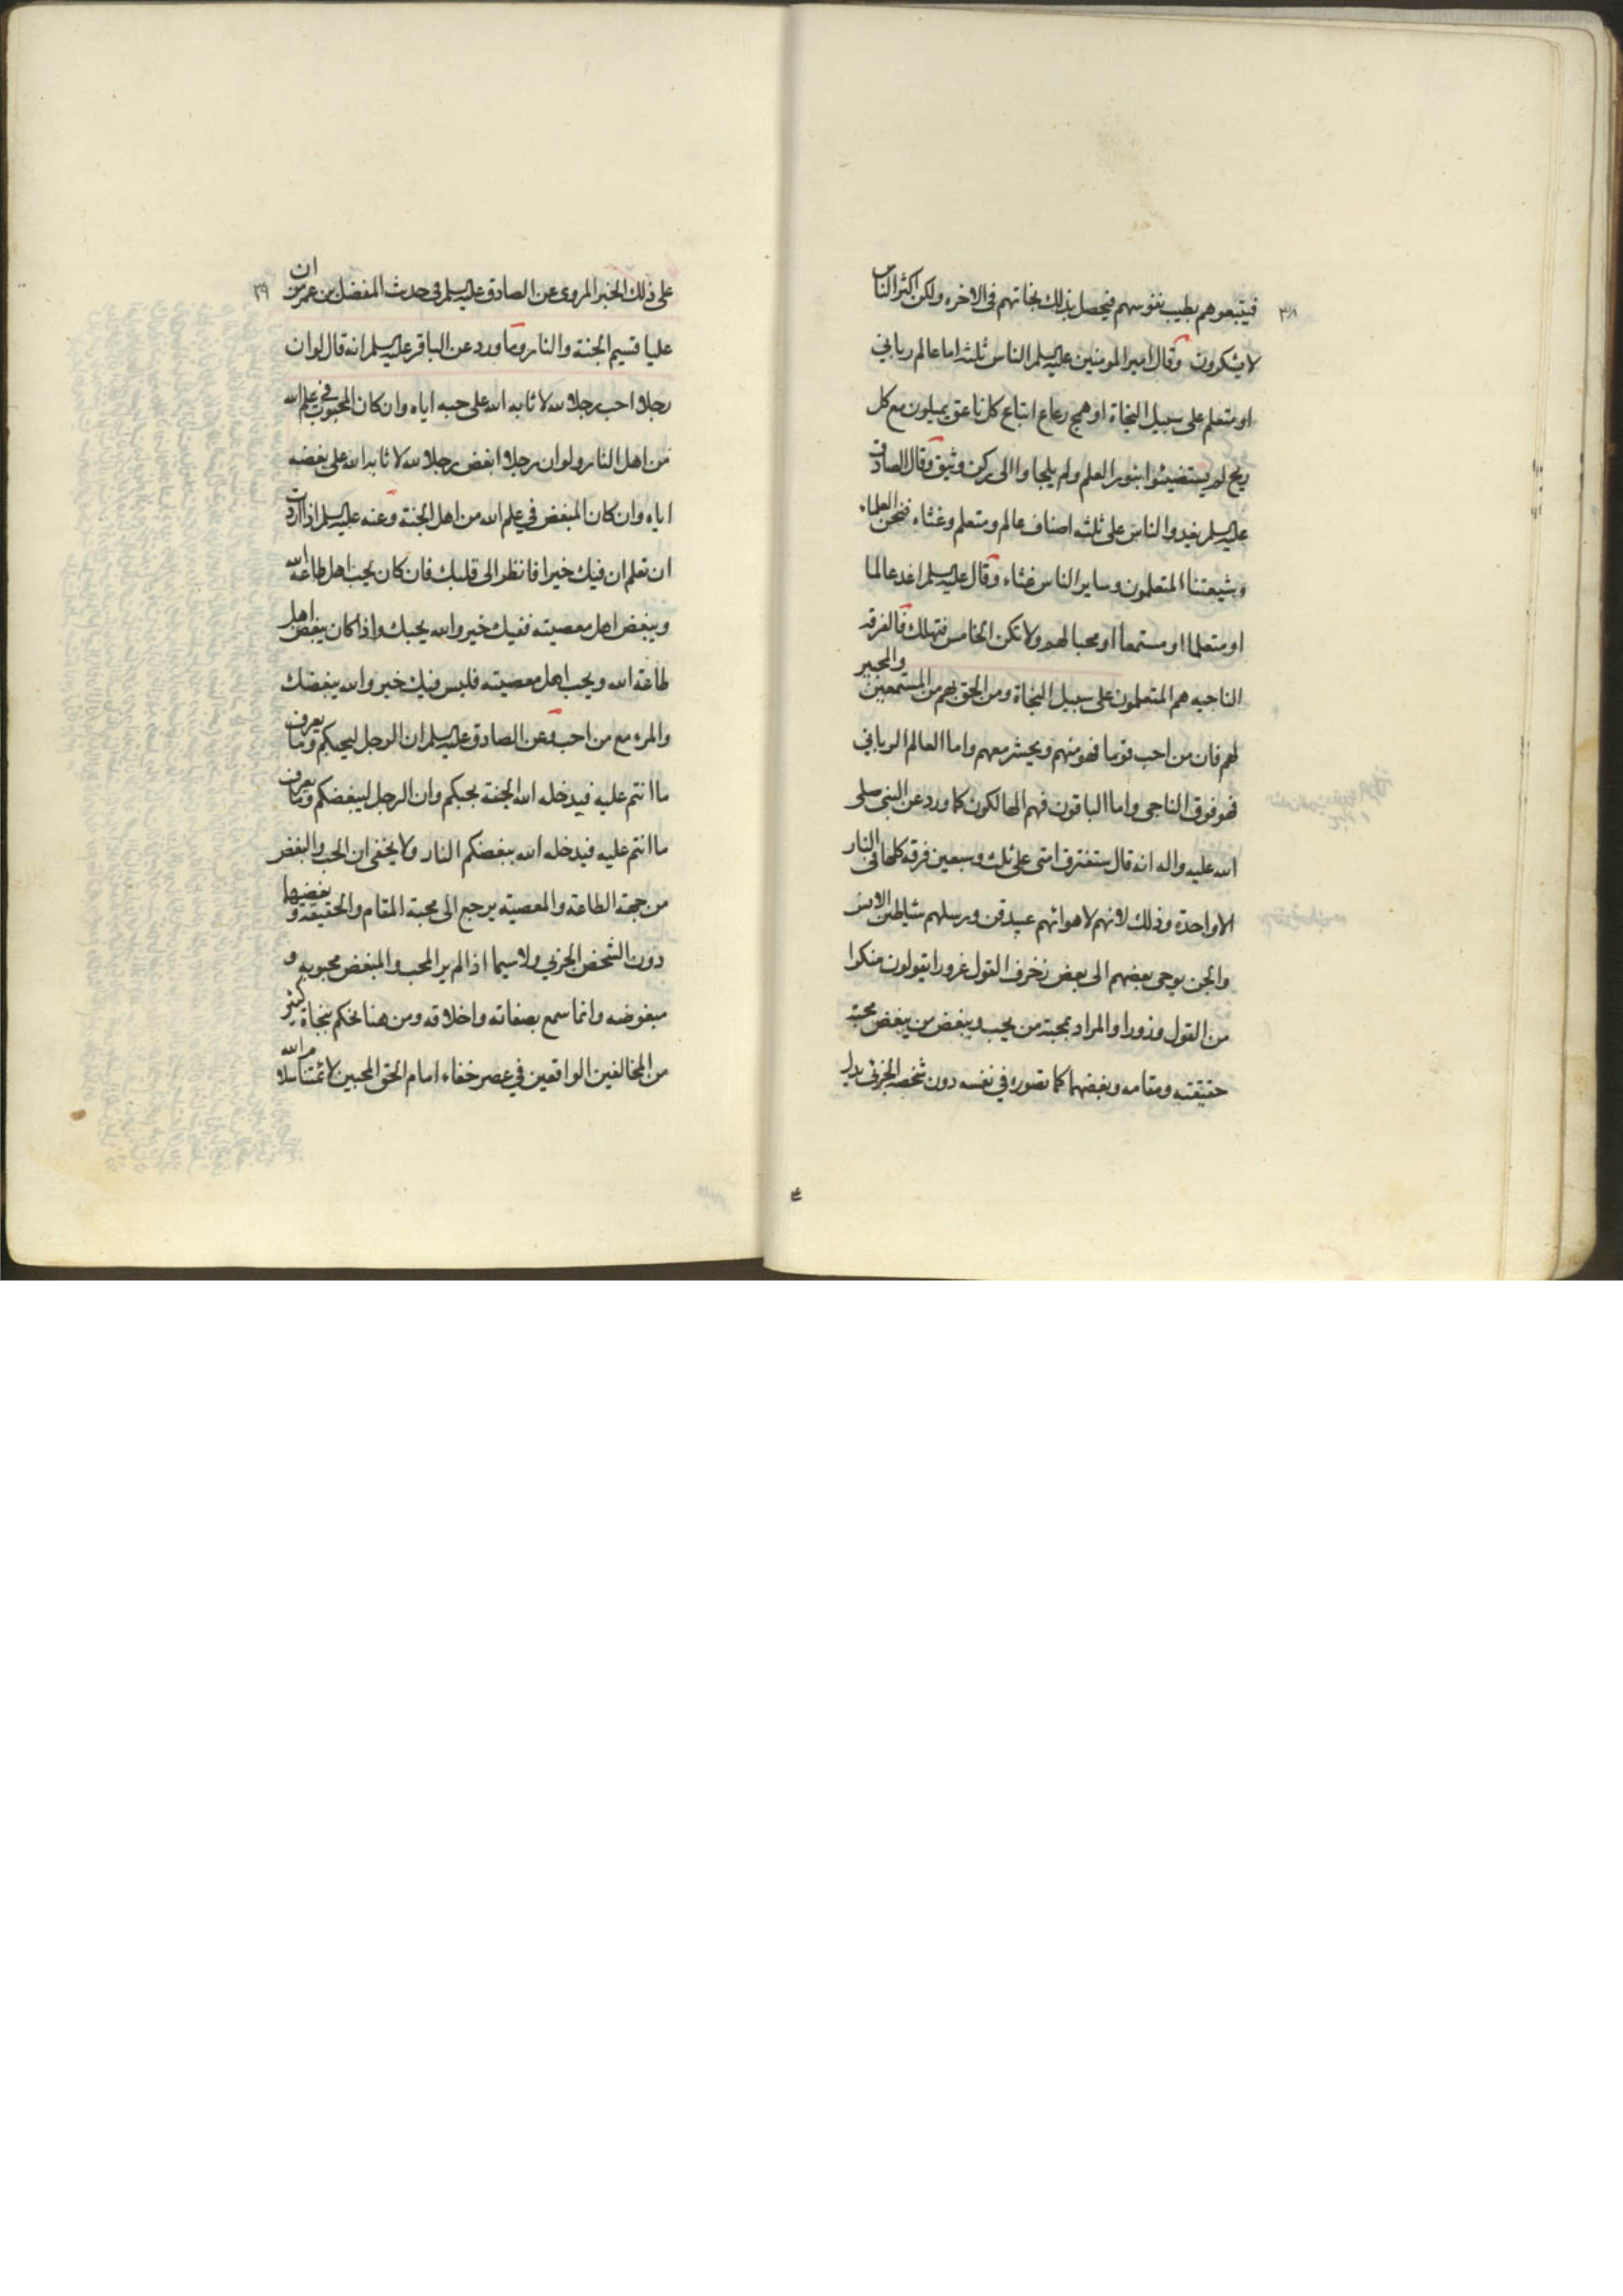 ٣٨
فيتبعوهم بطيب نفوسهم فيحصل بذلك نجاتهم فى الاخره ولكن اكثر الناس
لا يشكرون وقال امير المومنين عليه السلم الناس ثلثه اما عالم ربانى
او متعلم على سبيل النجاة او همج رعاع اتباع كل ناعق يميلون مع كل
ريح لم يستضيئوا بنور العلم ولم يلجاوا الى ركن وثيق وقال الصادق
عليه السلم يغدوا الناس على ثلثه اصناف عالم ومتعلم وغثاء فنحن العلماء
وشيعتنا المتعلمون وساير الناس غثاء وقال عليه السلم اغد عالما
او متعلما او مستمعا او محبا لهم ولا تكن الخامس فتهلك فالفرقه
الناجيه هم المتعلمون على سبيل النجاة ومن الحق بهم من المستمعين والمحبين
لهم فان من احب قوما فهو منهم ويحشر معهم واما العالم الربانى
فهو فوق الناجى واما الباقون فهم الهالكون كما ورد عن النبى صلى
الله عليه واله انه قال ستفترق امتى على ثلث وسبعين فرقه كلها فى النار
الا واحدة وذلك لانهم لاهوائهم عبيد قن ورسلهم شياطين الانس
والجن يوحى بعضهم الى بعض زخرف القول غرورا يقولون منكرا
من القول وزورا والمراد بمحبته من يحب ويبغض من يبغض محبة
حقيقته ومقامه وبغضهما كما تصوره فى نفسه دون شخصه الجزئى يدل
٣٩
على ذلك الخبر المروى عن الصادق عليه السلم فى حديث المفضل بن عمر من ان
عليا قسيم الجنة والنار وما ورد عن الباقر عليه السلم انه قال لو ان
رجلا احب رجلا لله لاثابه الله على حبه اياه وان كان المحبوب فى علم الله
من اهل النار ولو ان رجلا ابغض رجلا لله لاثابه الله على بغضه
اياه وان كان المبغض فى علم الله من اهل الجنة وعنه عليه السلم اذا اردت
ان تعلم ان فيك خيرا فانظر الى قلبك فان كان يحب اهل طاعة الله
ويبغض اهل معصيته ففيك خير والله يحبك واذا كان يبغض اهل
طاعة الله ويحب اهل معصيته فليس فيك خير والله يبغضك
والمرء مع من احب وعن الصادق عليه السلم ان الرجل ليحبكم وما يعرف
ما انتم عليه فيدخله الله الجنة بحبكم وان الرجل ليبغضكم وما يعرف
ما انتم عليه فيدخله الله ببغضكم النار ولا يخفى ان الحب والبغض
من جهة الطاعة والمعصيه يرجع الى محبة المقام والحقيقة وبغضهما
دون الشخص الجزئى ولا سيما اذا لم ير المحب والمبغض محبوبه و
مبغوضه وانما سمع بصفاته واخلاقه ومن هنا يحكم بنجاة كثير
من المخالفين الواقعين فى عصر خفاء امام الحق المحبين لائمتنا سلام الله